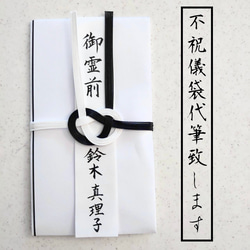 不祝儀袋代筆致します
御霊前
鈴木真理子